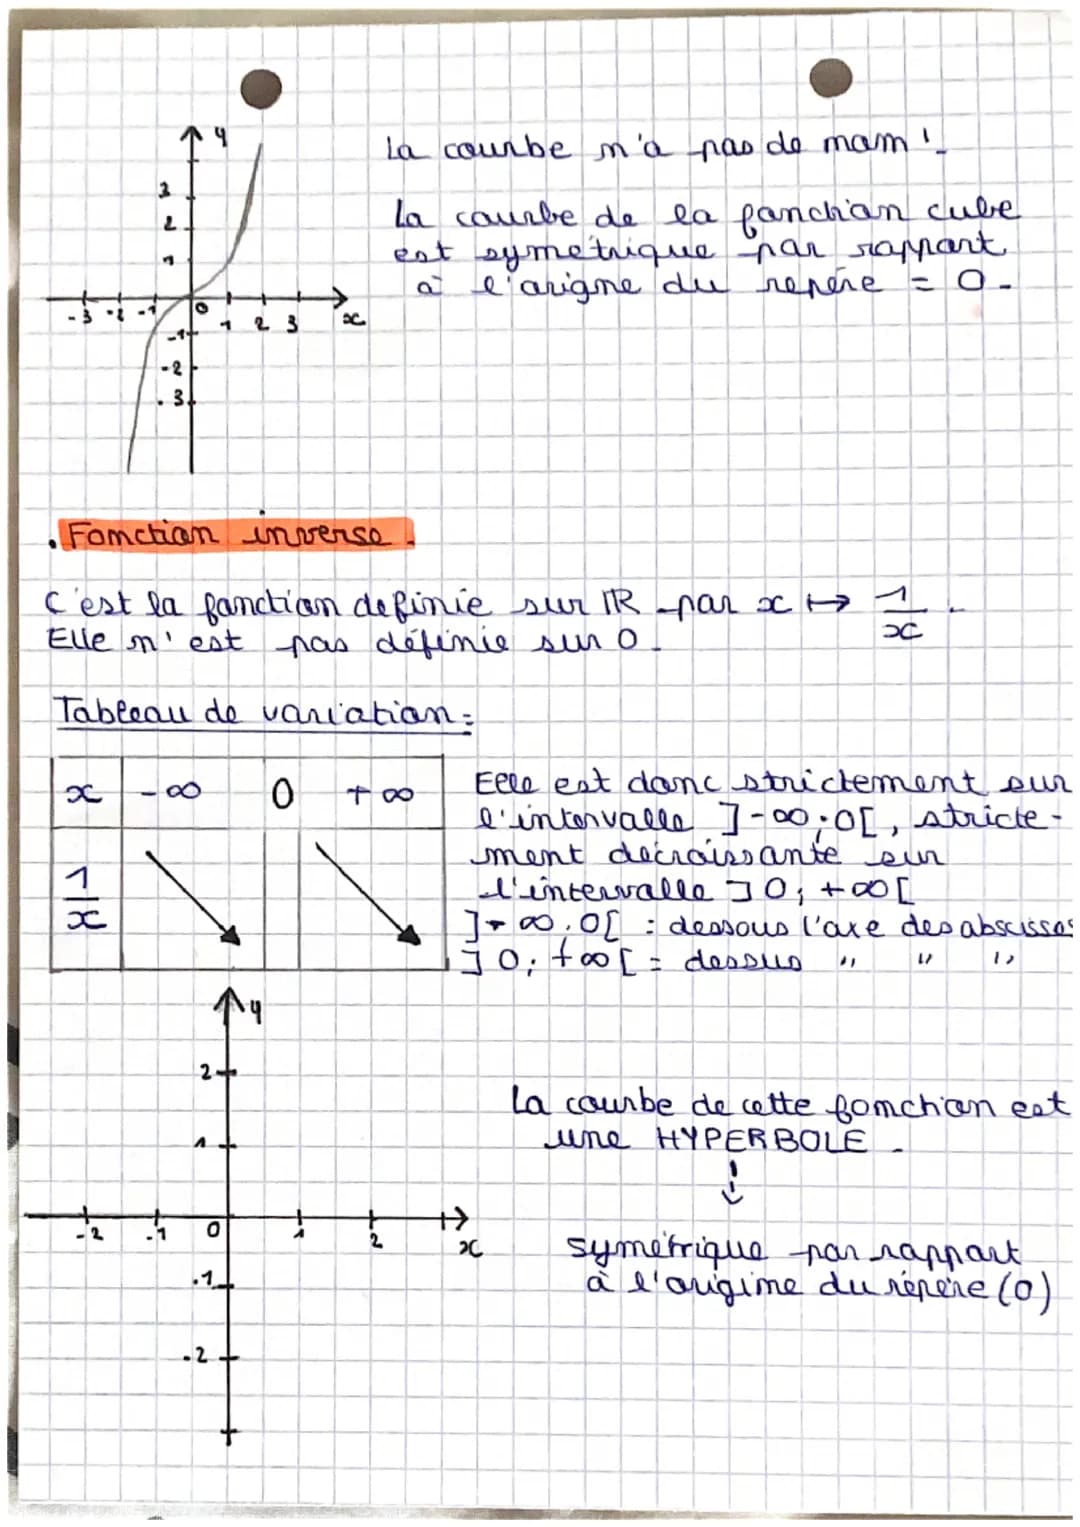 y
La courbe n'a pas de nom !
3
La courbe de la fonction cube
2
est symétrique par rapport
1
à l'origine du repère = 0.
-3 -2 -1 0 1 2 3 x
-1
-2
-3
. Fonction inverse.
C'est la fonction definie sur ℝ par x ↦ 1/x.
Elle n'est pas définie sur 0.
Tableau de variation :
x -∞ 0 +∞
1/x
Elle est donc strictement sur
l'intervalle ]-∞;0[, stricte-
ment décroissante sur
l'intervalle ]0; +∞[
]-∞.0[ : dessous l'axe des abscisses
]0; +∞[ = dessus " " "
y
2
1
La courbe de cette fonction est
une HYPERBOLE.
-2 -1 0 1 2 x
symétrique par rapport
à l'origine du repère (0)
-1
-2